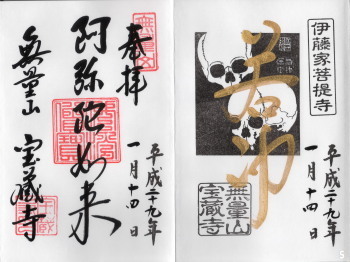 伊藤家菩提寺
平成二十九年
一月十四日
若冲
無量山
宝蔵寺
奉拝
平成二十九年
一月十四日
阿弥陀如来
無量山 宝蔵寺
5